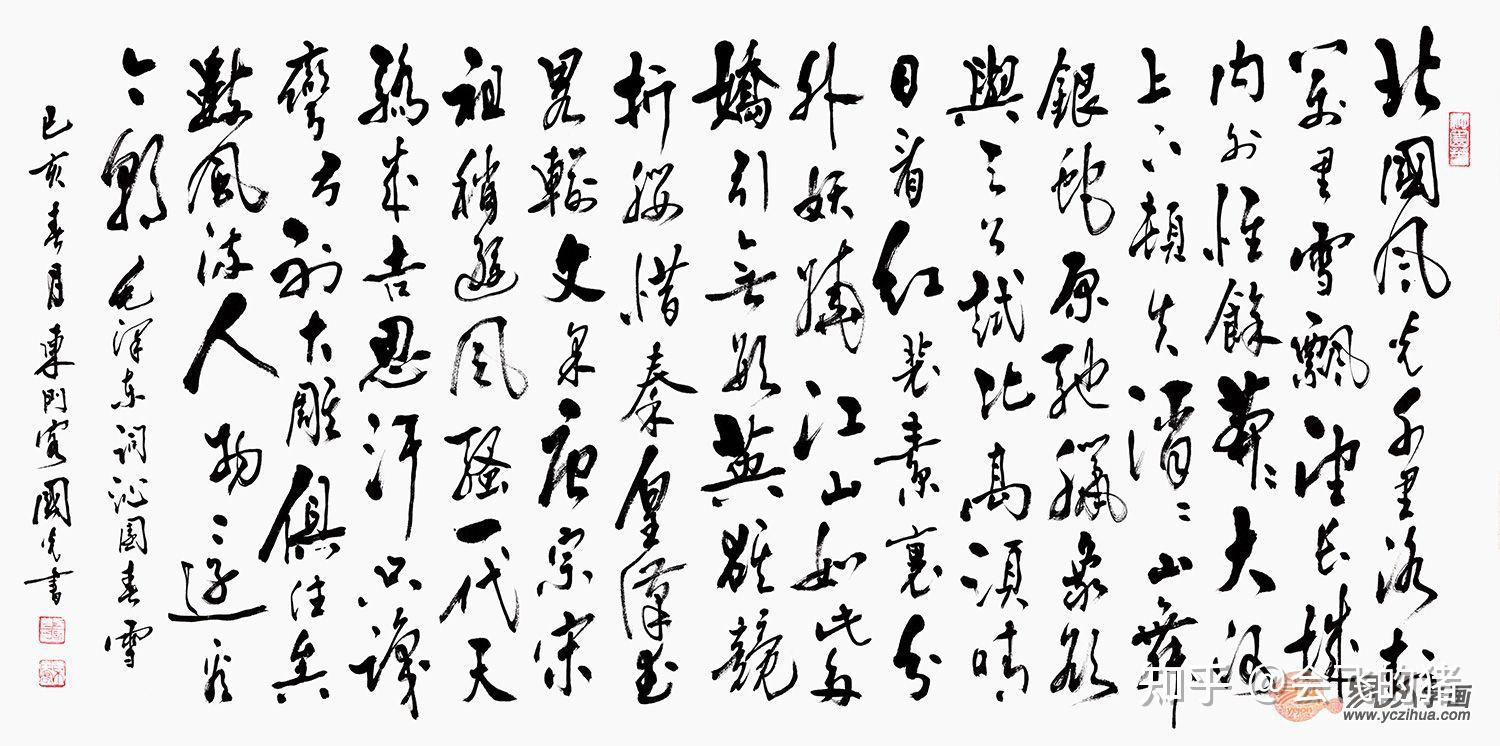 北國風光千里冰封
萬里雪飄望長城
内外惟餘莽莽大河
上下頓失滔滔山舞
銀蛇原馳臘象欲
與天公試比高須晴
日看紅裝素裹分
外妖嬈江山如此多
嬌引無數英雄競
折腰惜秦皇漢武
略輸文采唐宗宋
祖稍遜風騷一代天
驕成吉思汗只識
彎弓射大雕俱往矣
數風流人物還看
今朝 毛澤東詞沁園春雪
己亥春月東門客國光書
知乎 @会飞的猪
www.yczihua.com